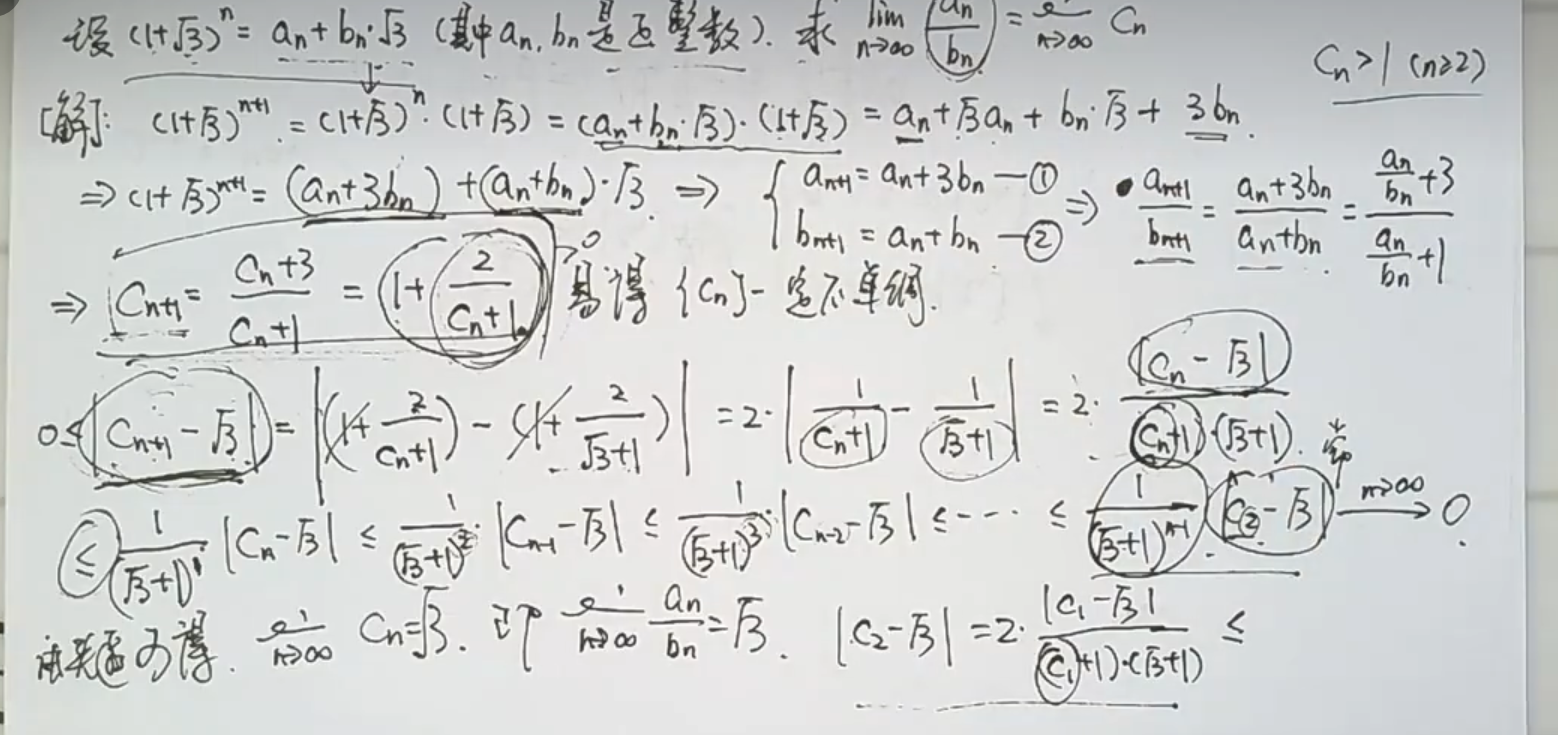 设 (1+√3)^n = a_n + b_n·√3 (其中 a_n, b_n 是正整数). 求 lim_{n→∞} (a_n/b_n) = lim_{n→∞} C_n
C_n > 1 (n≥2)
[解]: (1+√3)^{n+1} = (1+√3)^n · (1+√3) = (a_n + b_n·√3)·(1+√3) = a_n + √3 a_n + b_n·√3 + 3b_n.
⇒ (1+√3)^{n+1} = (a_n+3b_n) + (a_n+b_n)·√3. ⇒ { a_{n+1} = a_n+3b_n —① b_{n+1} = a_n+b_n —② ⇒ a_{n+1}/b_{n+1} = (a_n+3b_n)/(a_n+b_n) = (a_n/b_n+3)/(a_n/b_n+1)
⇒ C_{n+1} = (C_n+3)/(C_n+1) = 1 + 2/(C_n+1) >0 易得 {C_n}一定不单调.
0 ≤ |C_{n+1} - √3| = |(1+2/(C_n+1)) - (1+2/(√3+1))| = 2·|1/(C_n+1) - 1/(√3+1)| = 2·|C_n-√3|/((C_n+1)·(√3+1)).
≤ 1/(√3+1)^1 |C_n-√3| ≤ 1/(√3+1)^2·|C_{n-1}-√3| ≤ 1/(√3+1)^3·|C_{n-2}-√3| ≤ ---- ≤ 1/(√3+1)^{n-1} |C_2-√3| —n→∞→ 0.
由夹逼可得. lim_{n→∞} C_n = √3. 即 lim_{n→∞} a_n/b_n = √3. |C_2-√3| = 2·|C_1-√3|/((C_1+1)·(√3+1)) ≤